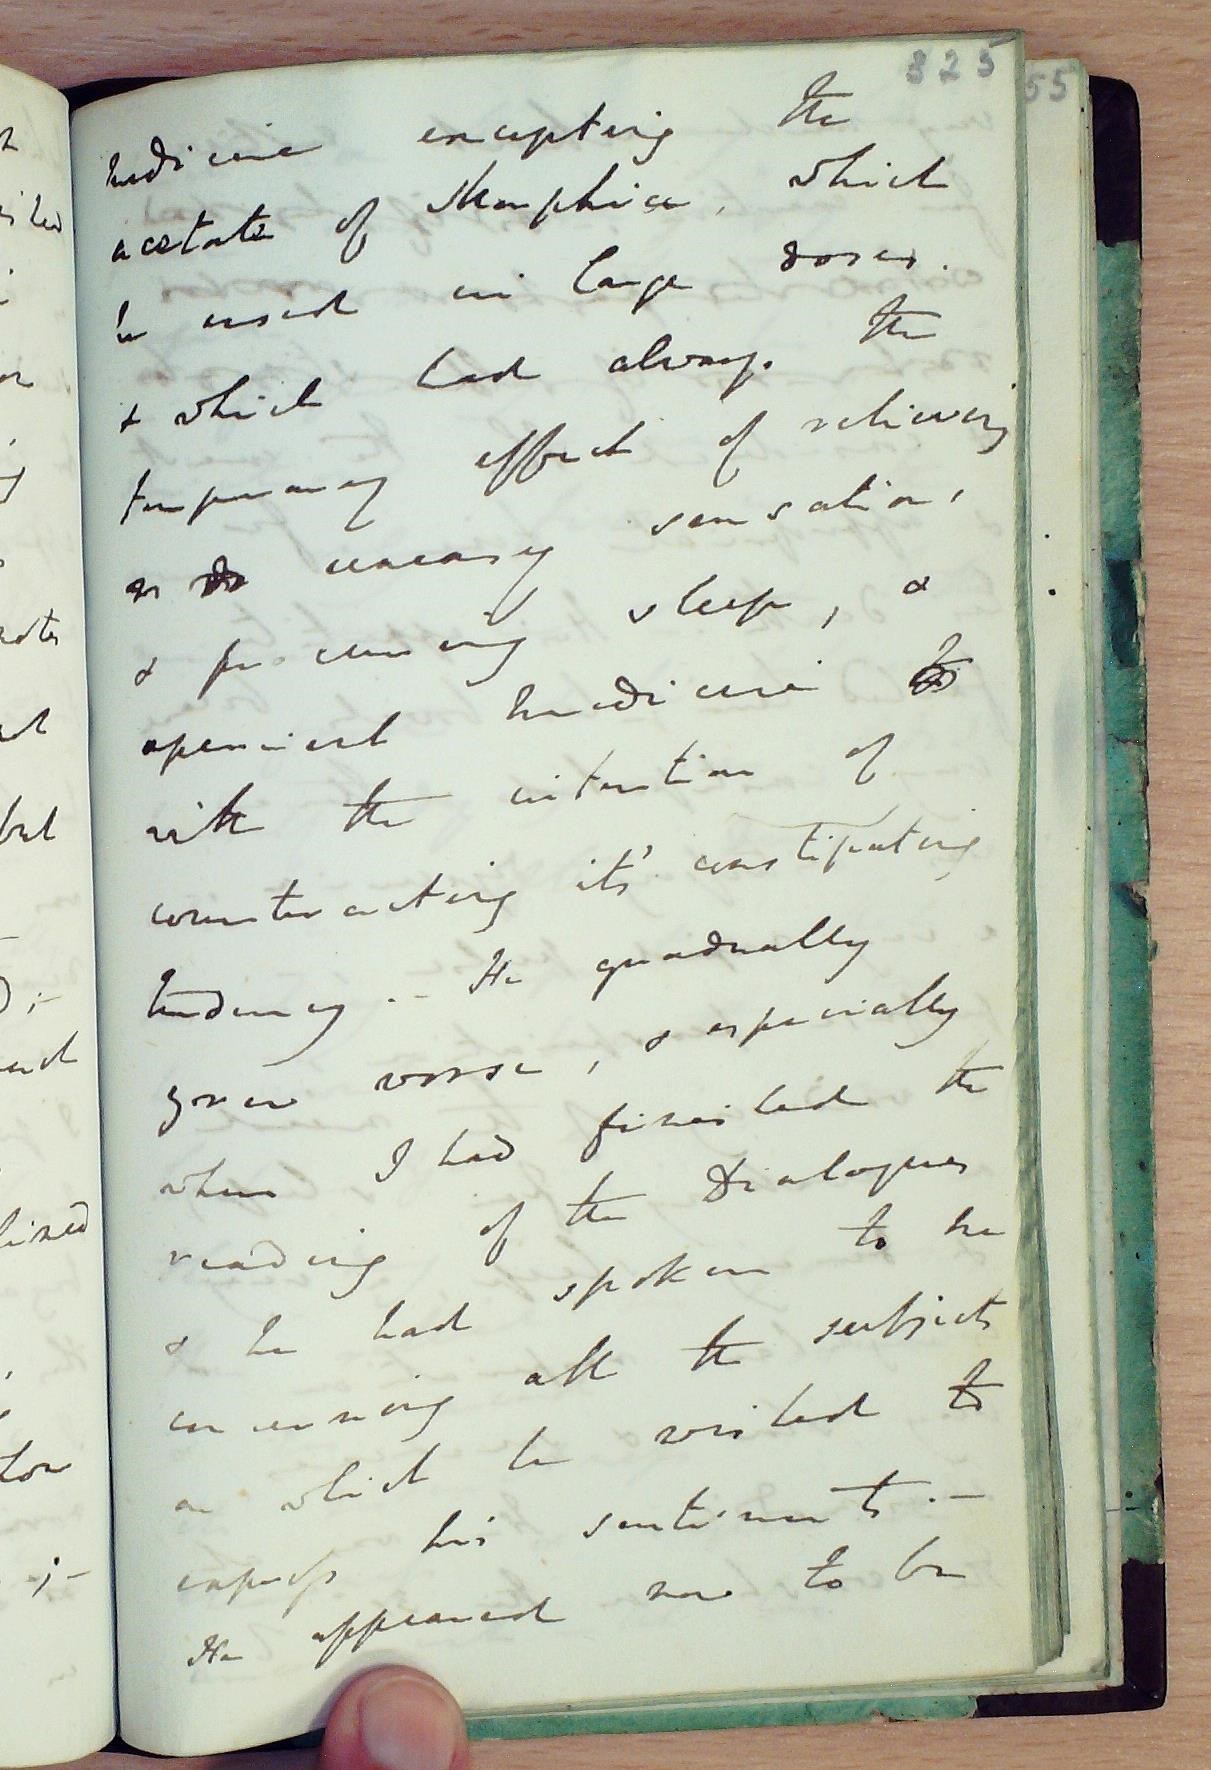 325
55
medicine excepting the
acetate of Morphia, which
he used in large doses.
& which had always the
temporary effect of relieving
uneasy sensation,
& procuring sleep, &
aperient medicine
with the intention of
counteracting it's constipating
tendency. - He gradually
grew worse, & especially
when I had finished the
reading of the Dialogues
& he had spoken to me
concerning all the subjects
on which he wished to
express his sentiments. -
He appeared now to be